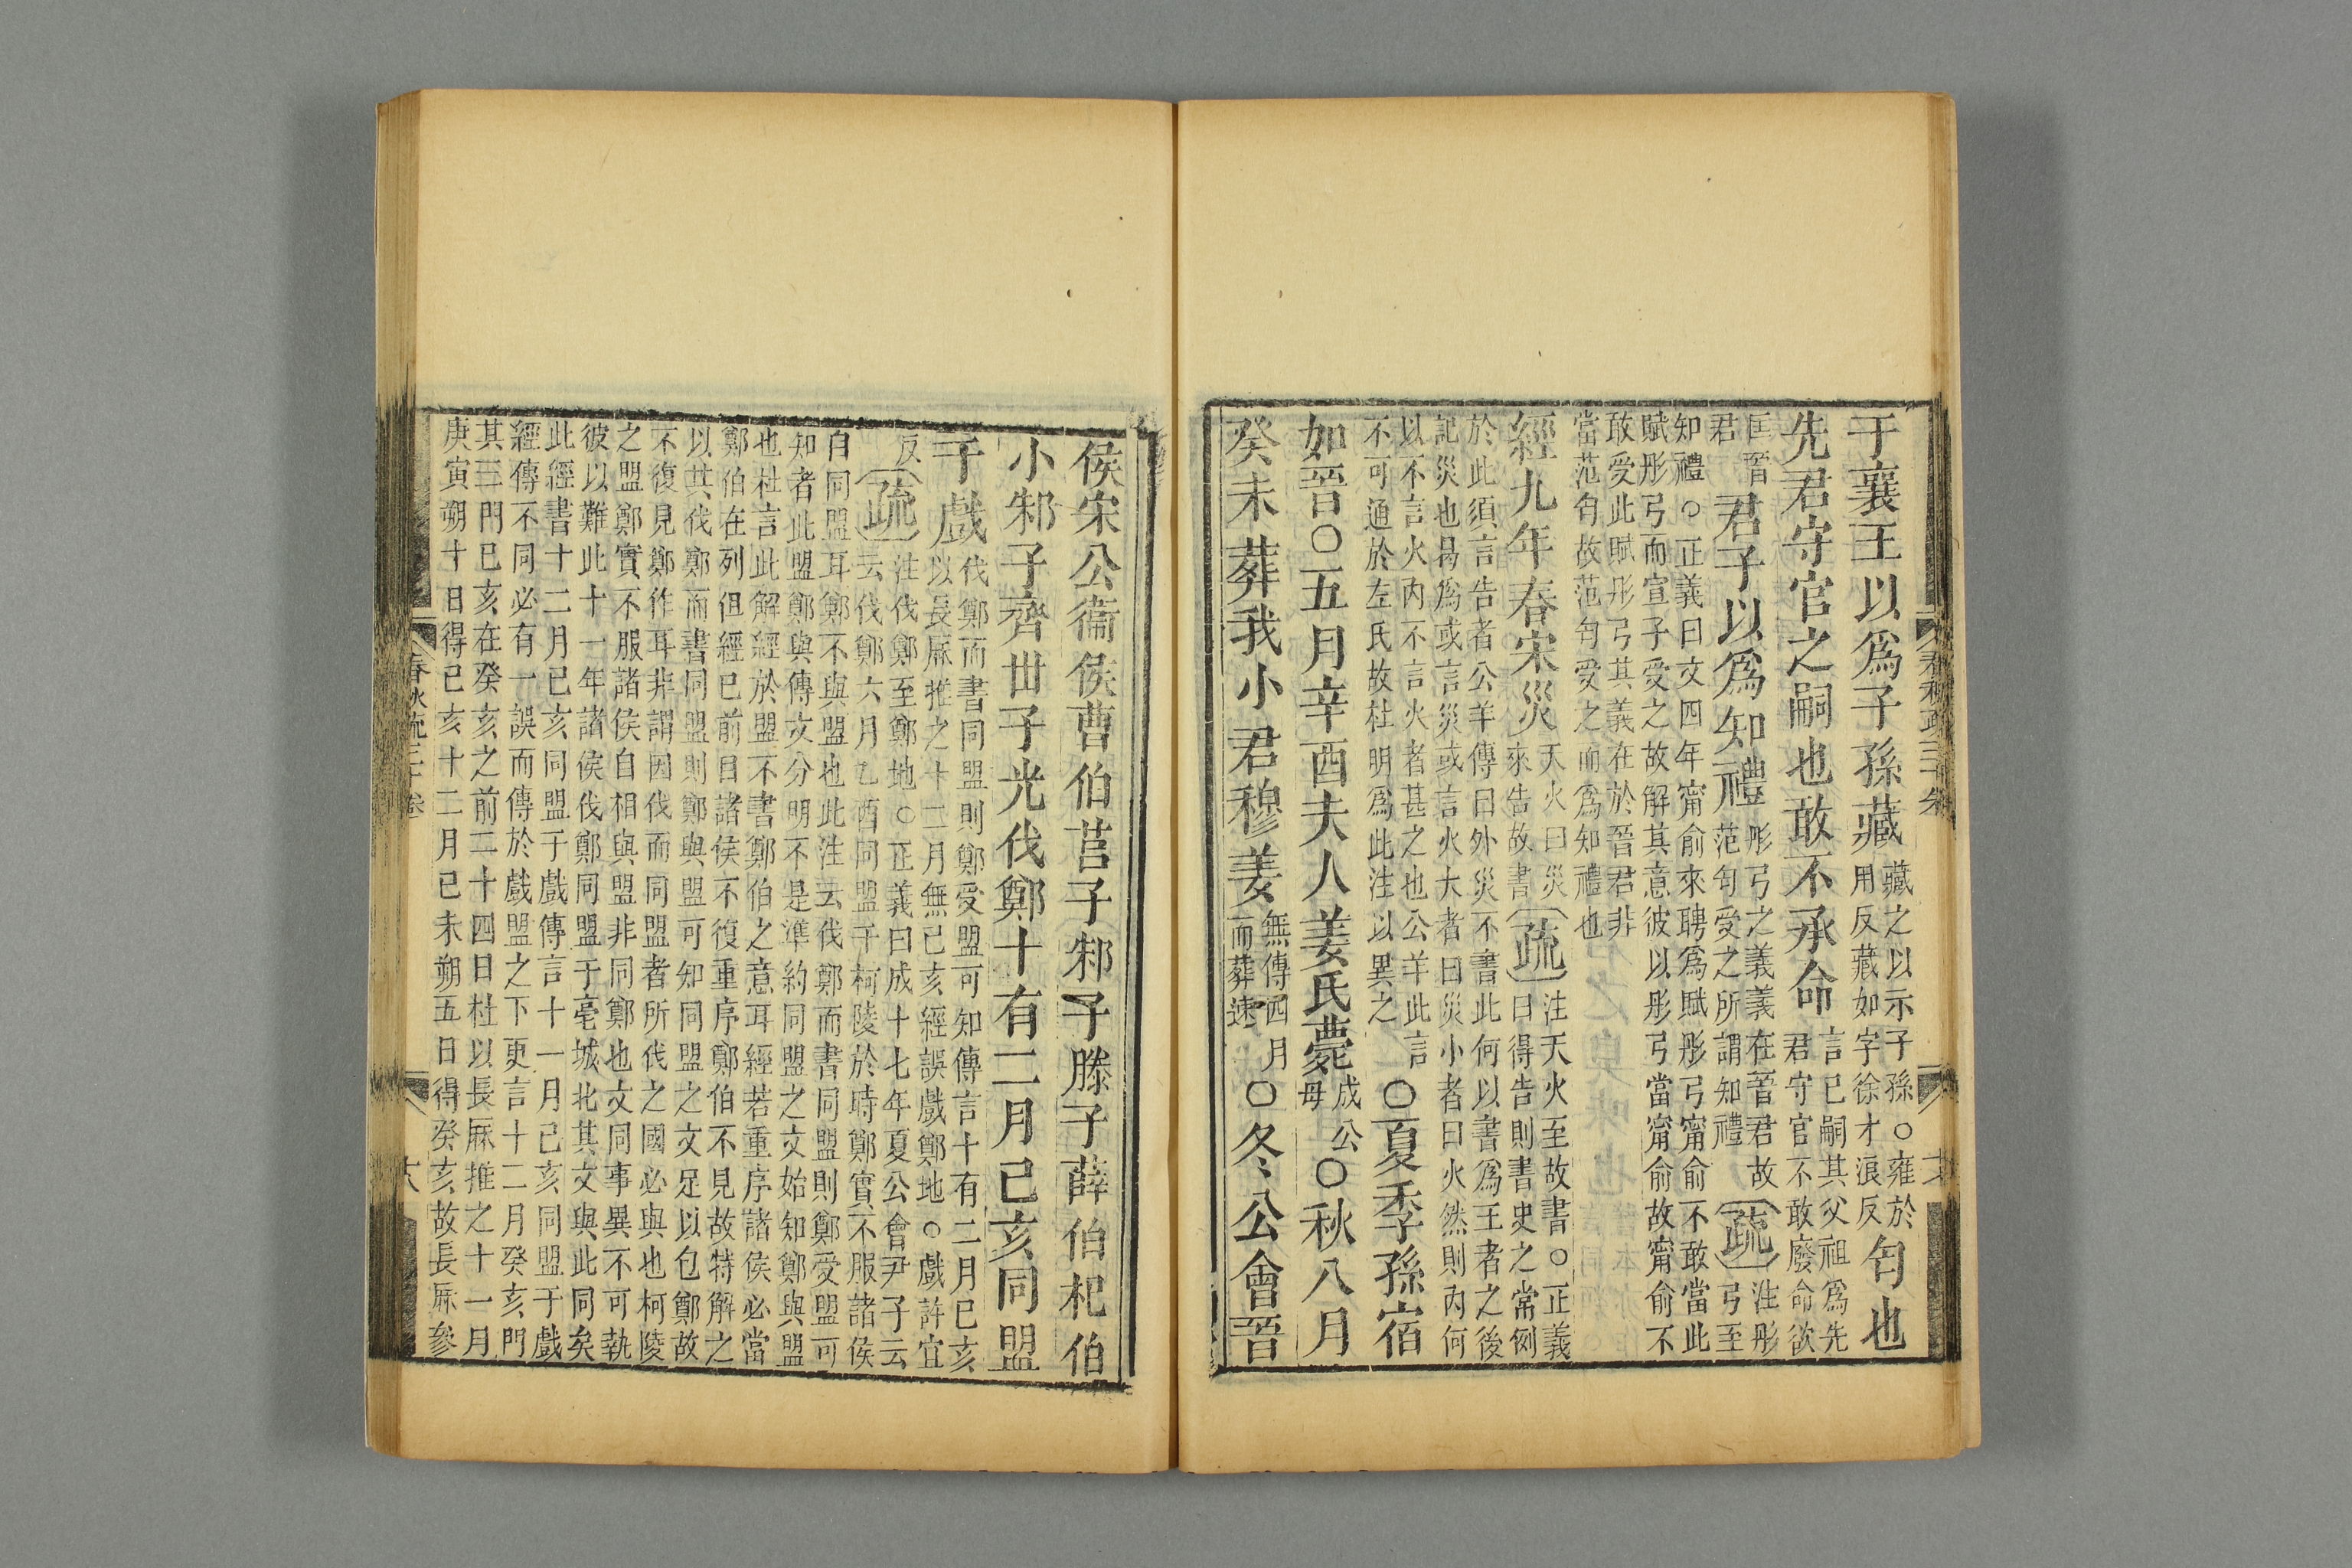 于襄王以爲子孫藏藏之以示子孫○雍於用反藏如字徐才浪反匄也
先君守官之嗣也敢不承命言已嗣其父祖爲先君守官不敢廢命欲
匡晉君君子以爲知禮彤弓之義義在晉君故范匄受之所謂知禮疏注彤弓至
知禮○正義曰文四年甯俞來聘爲賦彤弓甯俞不敢當此
賦彤弓而宣子受之故解其意彼以彤弓當甯俞故甯俞不
敢受此賦彤弓其義在於晉君非
當范匄故范匄受之而爲知禮也
經九年春宋災天火曰災來告故書疏注天火至故書○正義曰得告則書史之常例
於此須言告者公羊傳曰外災不書此何以書爲王者之後
記災也曷爲或言災或言火大者曰災小者曰火然則內何
以不言火內不言火者甚之也公羊此言
不可通於左氏故杜明爲此注以異之○夏季孫宿
如晉○五月辛酉夫人姜氏薨成公母○秋八月
癸未葬我小君穆姜無傳四月而葬速○冬公會晉
侯宋公衞侯曹伯莒子邾子滕子薛伯杞伯
小邾子齊世子光伐鄭十有二月己亥同盟
于戲伐鄭而書同盟則鄭受盟可知傳言十有二月己亥以長厤推之十二月無己亥經誤戲鄭地○戲許宜
反疏注伐鄭至鄭地○正義曰成十七年夏公會尹子云云伐鄭六月乙酉同盟于柯陵於時鄭實不服諸侯
自同盟耳鄭不與盟也此注云伐鄭而書同盟則鄭受盟可
知者此盟鄭與傳文分明不是準約同盟之文始知鄭與盟
也杜言此解經於盟不書鄭伯之意耳經若重序諸侯必當
鄭伯在列但經已前目諸侯不復重序鄭伯不見故特解之
以其伐鄭而書同盟則鄭與盟可知同盟之文足以包鄭故
不復見鄭作耳非謂因伐而同盟者所伐之國必與也柯陵
之盟鄭實不服諸侯自相與盟非同鄭也文同事異不可執
彼以難此十一年諸侯伐鄭同盟于亳城北其文與此同矣
此經書十二月己亥同盟于戲傳言十一月己亥同盟于戲
經傳不同必有一誤而傳於戲盟之下更言十二月癸亥門
其三門己亥在癸亥之前二十四日杜以長厤推之十一月
庚寅朔十日得己亥十二月己未朔五日得癸亥故長厤參